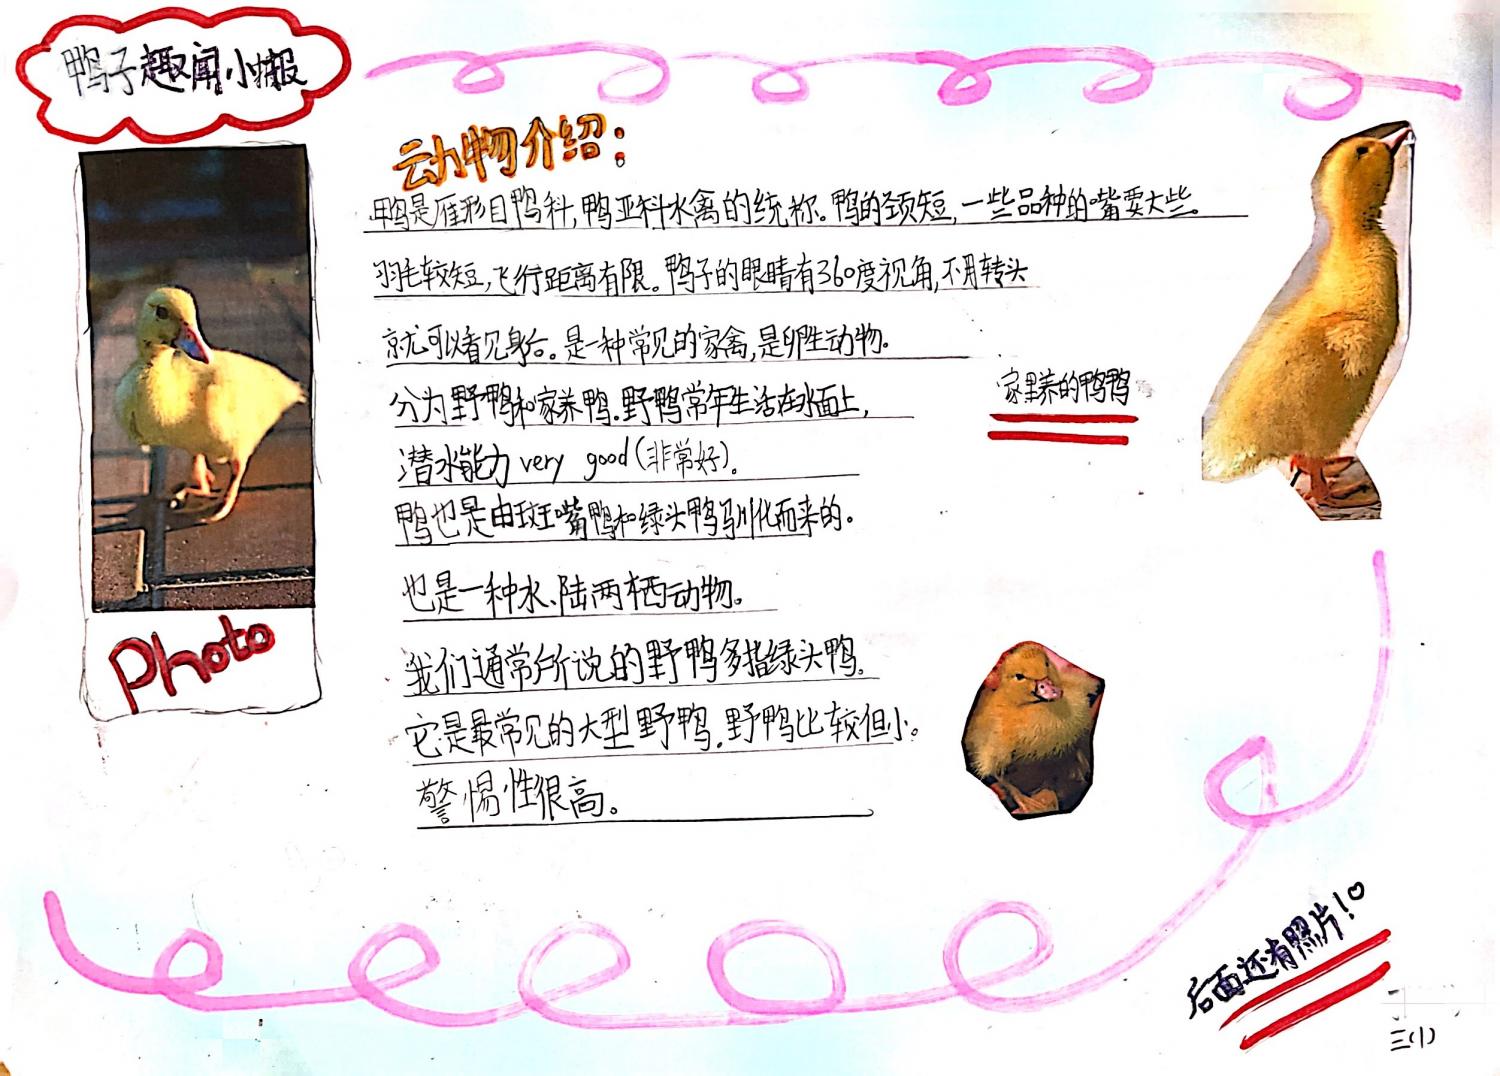 鸭子趣闻小报
动物介绍：
鸭是雁形目鸭科,鸭亚科水禽的统称。鸭的颈短,一些品种的嘴要大些。
羽毛较短,飞行距离有限。鸭子的眼睛有360度视角,不用转头
就可以看见身后。是一种常见的家禽,是卵生动物。
分为野鸭和家养鸭.野鸭常年生活在水面上,
潜水能力very good(非常好)。
鸭也是由斑嘴鸭和绿头鸭驯化而来的。
也是一种水、陆两栖动物。
我们通常所说的野鸭多指绿头鸭.
它是最常见的大型野鸭.野鸭比较但小。
警惕性很高。
家里养的鸭鸭
Photo
后面还有照片!
三(1)